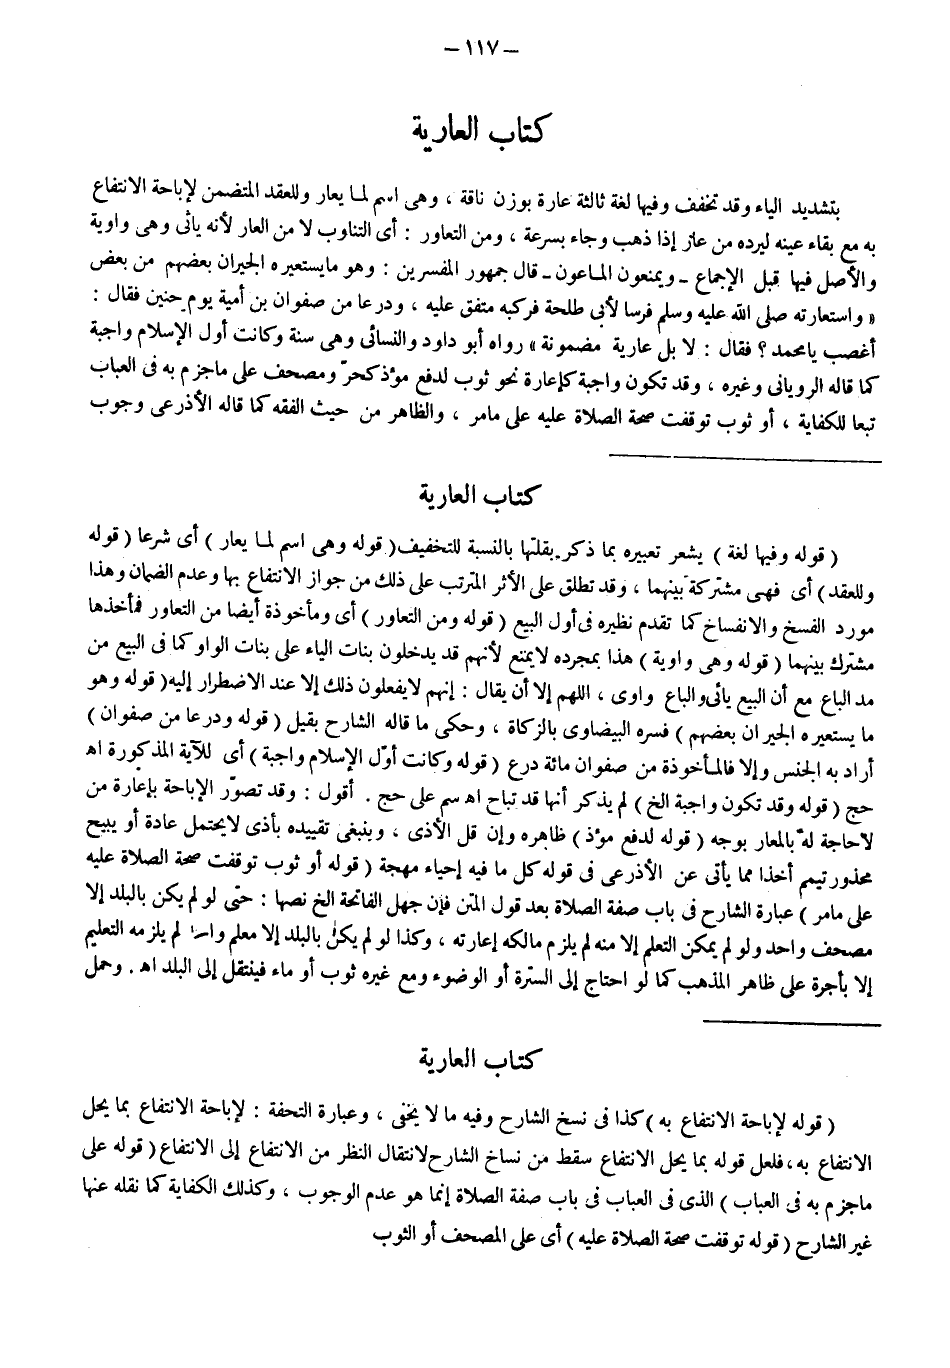 – ١١٧ –
كتاب العارية
بتشديد الياء وقد تخفف وفيها لغة ثالثة عارة بوزن ناقة ، وهى اسم لما يعار وللعقد المتضمن لإباحة الانتفاع
به مع بقاء عينه ليرده من عار إذا ذهب وجاء بسرعة ، ومن التعاور : أى التناوب لا من العار لأنه يائى وهى واوية
والأصل فيها قبل الإجماع ـ ويمنعون الماعون ـ قال جمهور المفسرين : وهو مايستعيره الجيران بعضهم من بعض
« واستعارته صلى الله عليه وسلم فرسا لأبى طلحة فركبه متفق عليه ، ودرعا من صفوان بن أمية يوم حنين فقال :
أغصب يامحمد ؟ فقال : لا بل عارية مضمونة » رواه أبو داود والنسائى وهى سنة وكانت أول الإسلام واجبة
كما قاله الرويانى وغيره ، وقد تكون واجبة كإعارة نحو ثوب لدفع مؤذ كحرّ ومصحف على ماجزم به فى العباب
تبعا للكفاية ، أو ثوب توقفت صحة الصلاة عليه على مامر ، والظاهر من حيث الفقه كما قاله الأذرعى وجوب
كتاب العارية
( قوله وفيها لغة ) يشعر تعبيره بما ذكر بقلتها بالنسبة للتخفيف ( قوله وهى اسم لما يعار ) أى شرعا ( قوله
وللعقد ) أى فهى مشتركة بينهما ، وقد تطلق على الأثر المترتب على ذلك من جواز الانتفاع بها وعدم الضمان وهذا
مورد الفسخ والانفساخ كما تقدم نظيره فى أول البيع ( قوله ومن التعاور ) أى ومأخوذة أيضا من التعاور فمأخذها
مشترك بينهما ( قوله وهى واوية ) هذا بمجرده لايمنع لأنهم قد يدخلون بنات الياء على بنات الواو كما فى البيع من
مد الباع مع أن البيع يائى والباع واوى ، اللهم إلا أن يقال : إنهم لايفعلون ذلك إلا عند الاضطرار إليه ( قوله وهو
ما يستعيره الجيران بعضهم ) فسره البيضاوى بالزكاة ، وحكى ما قاله الشارح بقيل ( قوله ودرعا من صفوان )
أراد به الجنس وإلا فالمأخوذة من صفوان مائة درع ( قوله وكانت أوّل الإسلام واجبة ) أى للآية المذكورة اه
حج ( قوله وقد تكون واجبة الخ ) لم يذكر أنها قد تباح اه سم على حج . أقول : وقد تصوّر الإباحة بإعارة من
لاحاجة له بالمعار بوجه ( قوله لدفع مؤذ ) ظاهره وإن قل الأذى ، وينبغى تقييده بأذى لايحتمل عادة أو يبيح
محذور تيمم أخذا مما يأتى عن الأذرعى فى قوله كل ما فيه إحياء مهجة ( قوله أو ثوب توقفت صحة الصلاة عليه
على مامر ) عبارة الشارح فى باب صفة الصلاة بعد قول المتن فإن جهل الفاتحة الخ نصها : حتى لو لم يكن بالبلد إلا
مصحف واحد ولو لم يمكن التعلم إلا منه لم يلزم مالكه إعارته ، وكذا لو لم يكن بالبلد إلا معلم واحد لم يلزمه التعليم
إلا بأجرة على ظاهر المذهب كما لو احتاج إلى السترة أو الوضوء ومع غيره ثوب أو ماء فينتقل إلى البلد اه . وحمل
كتاب العارية
( قوله لإباحة الانتفاع به ) كذا فى نسخ الشارح وفيه ما لا يخفى ، وعبارة التحفة : لإباحة الانتفاع بما يحل
الانتفاع به ، فلعل قوله بما يحل الانتفاع سقط من نساخ الشارح لانتقال النظر من الانتفاع إلى الانتفاع ( قوله على
ماجزم به فى العباب ) الذى فى العباب فى باب صفة الصلاة إنما هو عدم الوجوب ، وكذلك الكفاية كما نقله عنها
غير الشارح ( قوله توقفت صحة الصلاة عليه ) أى على المصحف أو الثوب